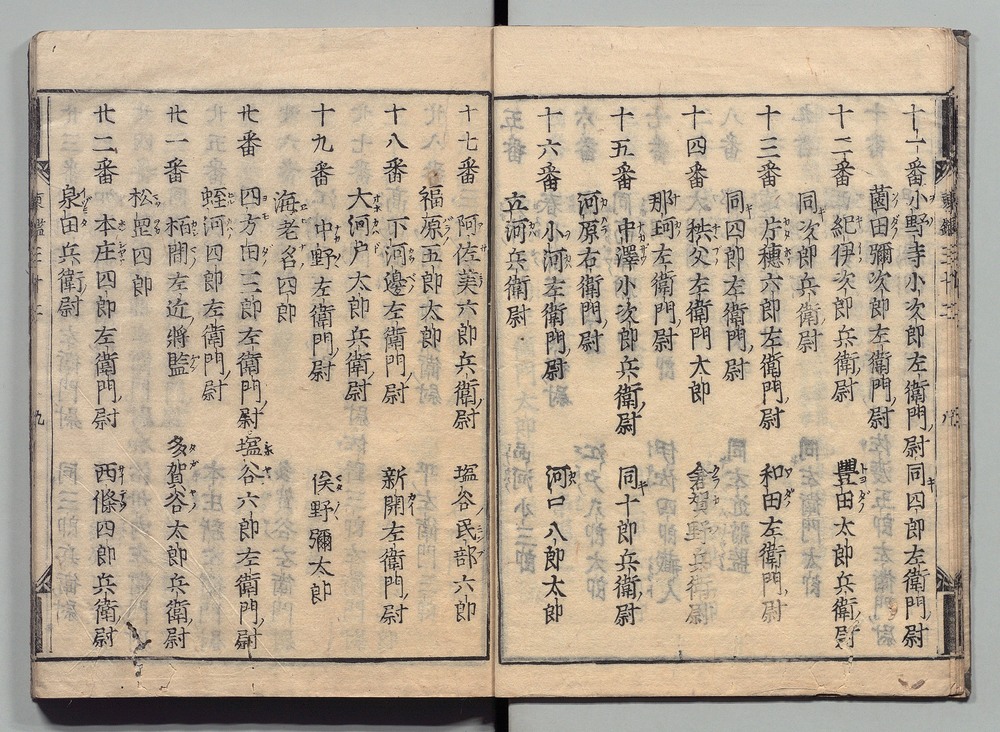 十一番小野寺小次郎左衛門尉同四郎左衛門尉
薗田彌次郎左衛門尉
十二番紀伊次郎兵衛尉 豐田太郎兵衛尉
同次郎兵衛尉
十三番片穗六郎左衛門尉 和田左衛門尉
同四郎左衛門尉
十四番秩父左衛門太郎 倉賀野兵衛尉
那珂左衛門尉
十五番中澤小次郎兵衛尉 同十郎兵衛尉
河原右衛門尉
十六番小河左衛門尉 河口八郎太郎
立河兵衛尉
十七番阿佐美六郎兵衛尉 塩谷民部六郎
福原五郎太郎
十八番下河邊左衛門尉 新開左衛門尉
大河戸太郎兵衛尉
十九番中野左衛門尉 俟野彌太郎
海老名四郎
廿番 四方田三郎左衛門尉塩谷六郎左衛門尉
蛭河四郎左衛門尉
廿一番栢間左近將監 多賀谷太郎兵衛尉
松四郎
廿二番本庄四郎左衛門尉 西條四郎兵衛尉
泉田兵衛尉
九